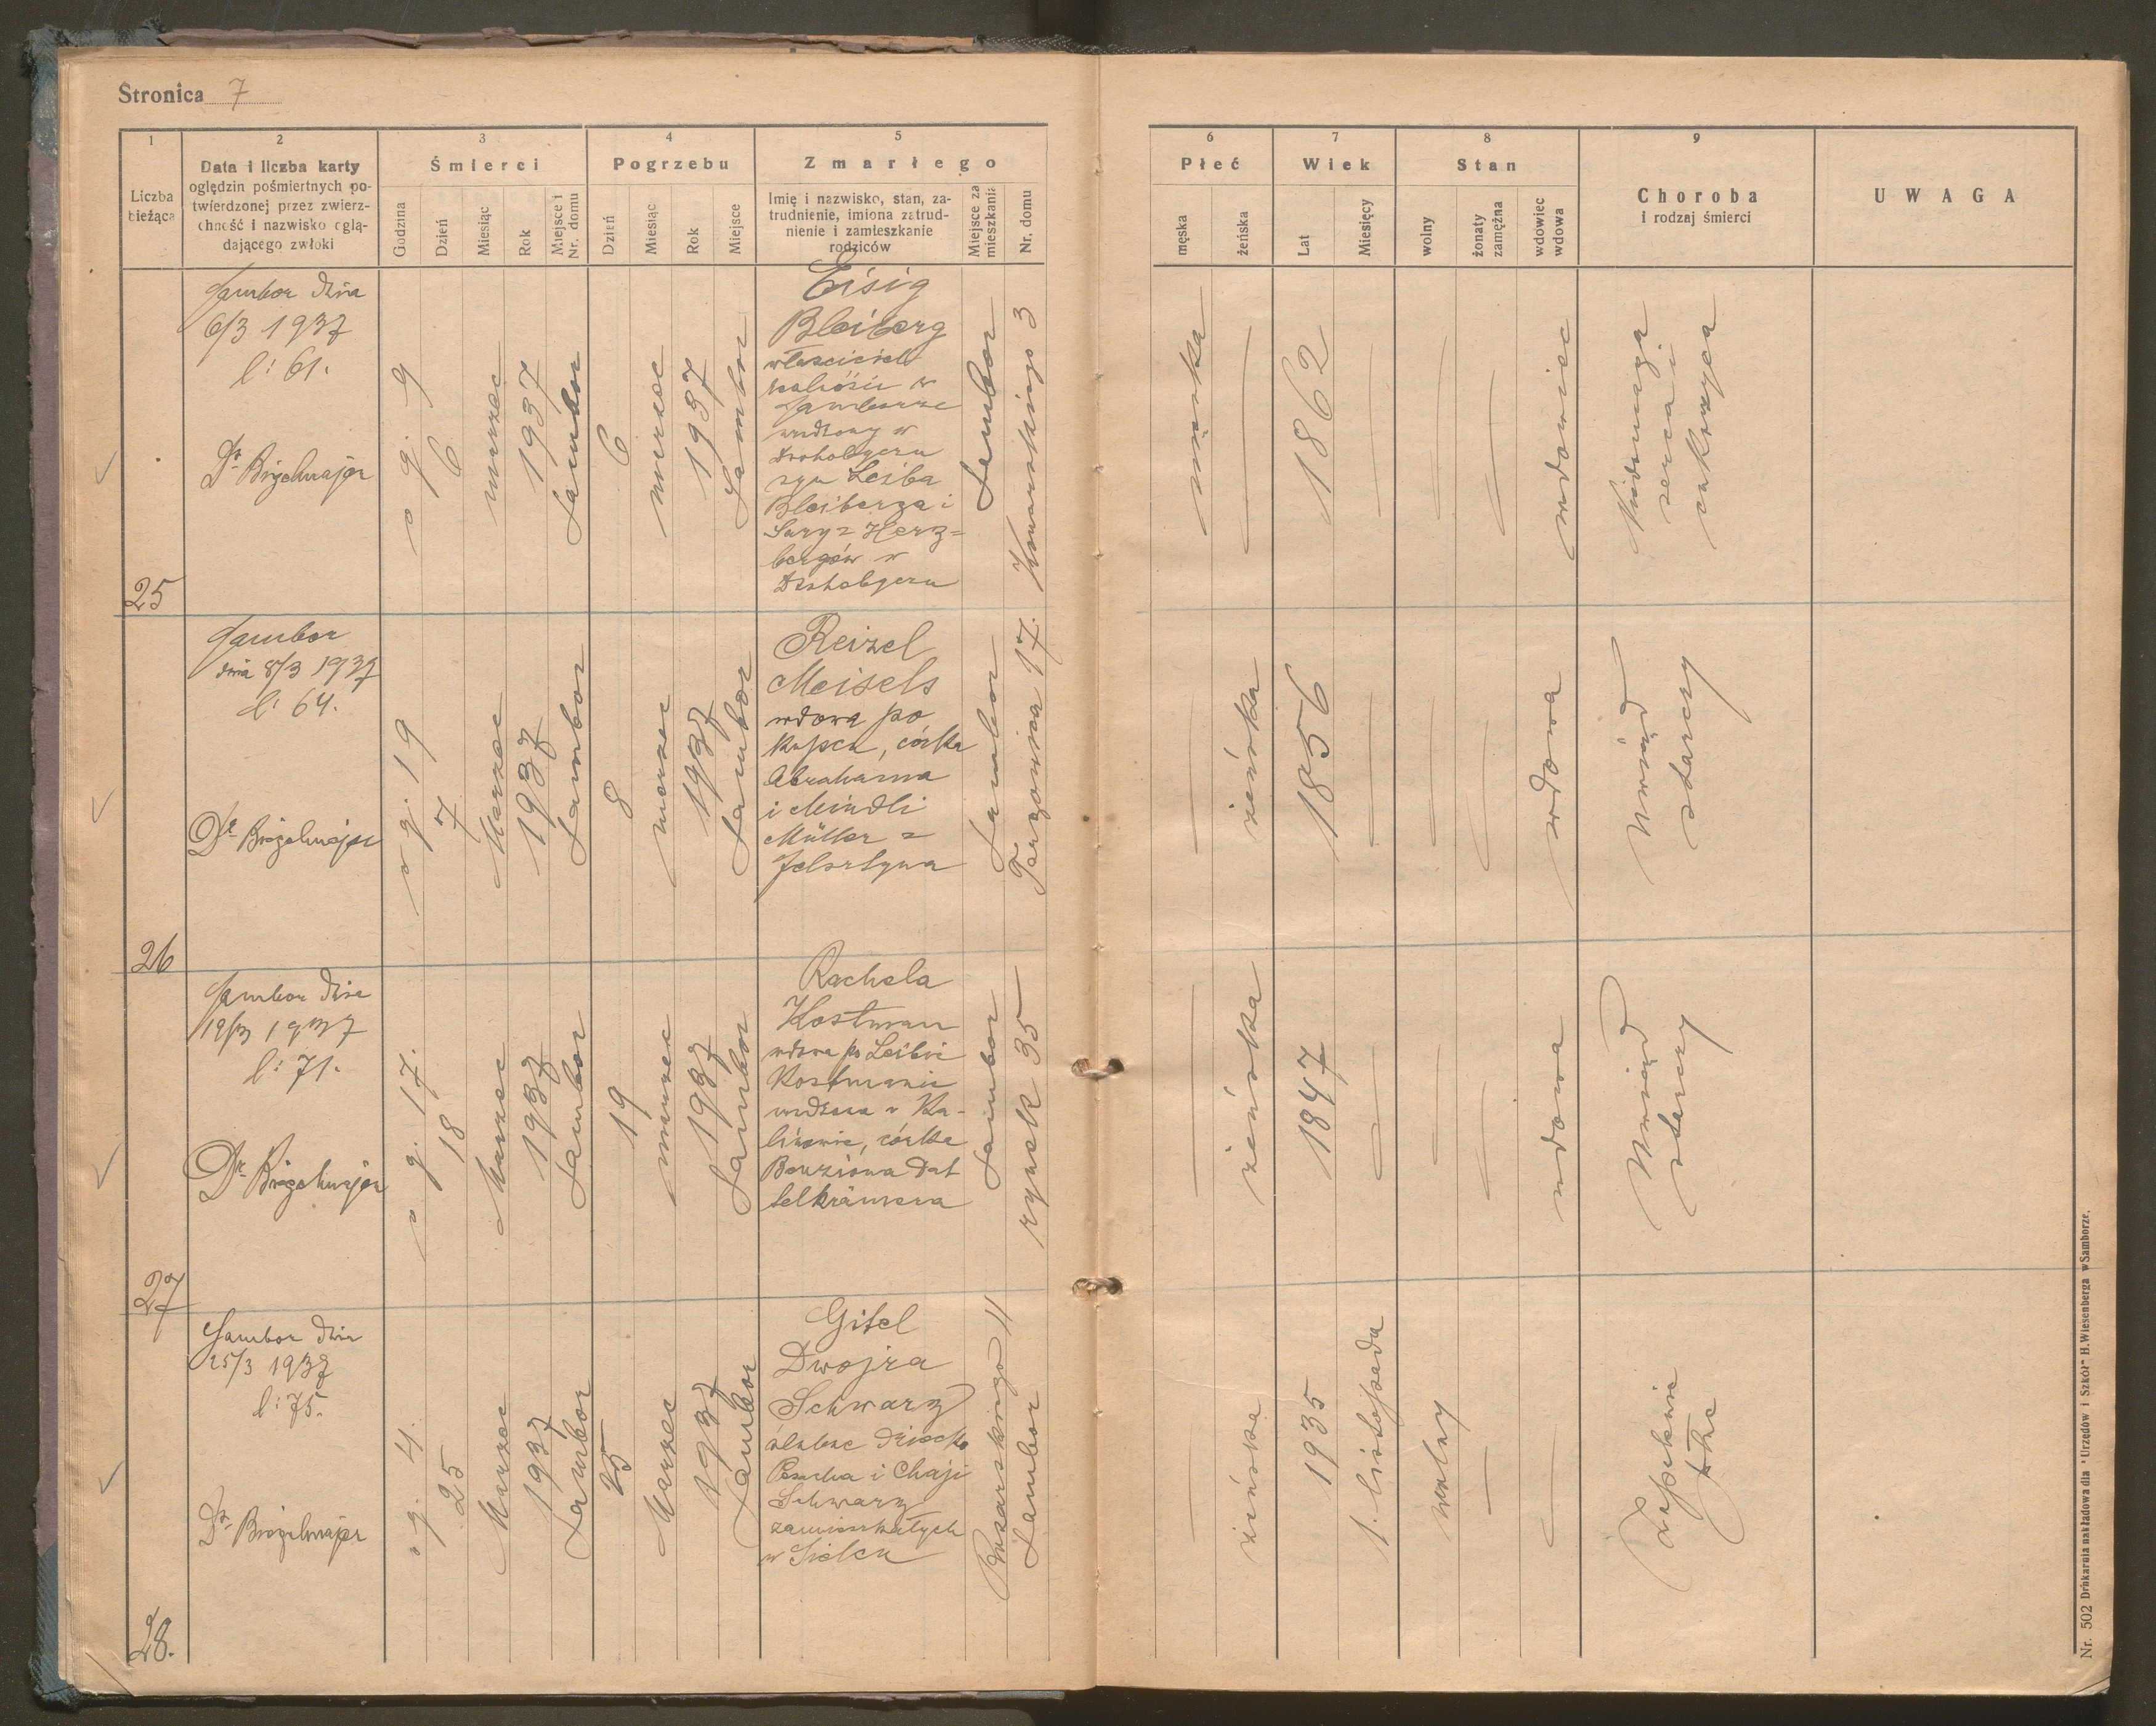 Stronica 7
1 2 3 4 5
Liczba bieżąca
Data i liczba karty
oględzin pośmiertnych po-
twierdzonej przez zwierz-
chność i nazwisko oglą-
dającego zwłoki
Śmierci
Godzina
Dzień
Miesiąc
Rok
Miejsce i
Nr. domu
Pogrzebu
Dzień
Miesiąc
Rok
Miejsce
Zmarłego
Imię i nazwisko, stan, za-
trudnienie, imiona zatrud-
nienie i zamieszkanie
rodziców
Miejsce za
mieszkania
Nr. domu
6 7 8 9
Płeć
męska
żeńska
Wiek
Lat
Miesięcy
Stan
wolny
żonaty
zamężna
wdowiec
wdowa
Choroba
i rodzaj śmierci
UWAGA
25
Sambor dnia
6/3 1937
l: 61.
o g. 9
6
marzec
1937
Sambor
6
marzec
1937
Sambor
Eisig
Bleiberg
właściciel
realności w
Samborze
urodzony w
Drohobyczu
syn Leiba
Bleiberga i
Sary z Herz=
bergów w
Drohobyczu
Sambor
3
męska
1862
wdowiec
Niedomaga
serca i
cukrzyca
26
Sambor
dnia 8/3 1937
l: 64.
o g. 19
7
Marzec
1937
Sambor
8
marzec
1937
Sambor
Reizel
Meisels
wdowa po
kupcu, córka
Abrahama
i Mindli
Müller z
Felsztyna
Sambor
Targowica 17.
żeńska
1856
wdowa
Uwiąd
starczy
27
Sambor dnia
19/3 1937
l: 71.
o g. 17.
18
Marzec
1937
Sambor
19
marzec
1937
Sambor
Rachela
Kostman
wdowa po Leibie
Kostmanie
urodzona w Ka-
linowie, córka
Benziona Dat
telkrämera
Sambor
rynek 35
żeńska
1847
wdowa
Uwiąd
starczy
28.
Sambor dnia
25/3 1937
l: 75.
o g. 4.
25
Marzec
1937
Sambor
25
Marzec
1937
Sambor
Gitel
Dwojra
Schwarz
ślubne dziecko
i Chaji
Schwarz
zamieszkałych
w Sielcu
Sambor
11
żeńska
1935
1. listopada
wolny
Zapalenie
płuc
Nr. 502 Drukarnia nakładowa dla "Urzędów i Szkół" H. Wiesenberga w Samborze.